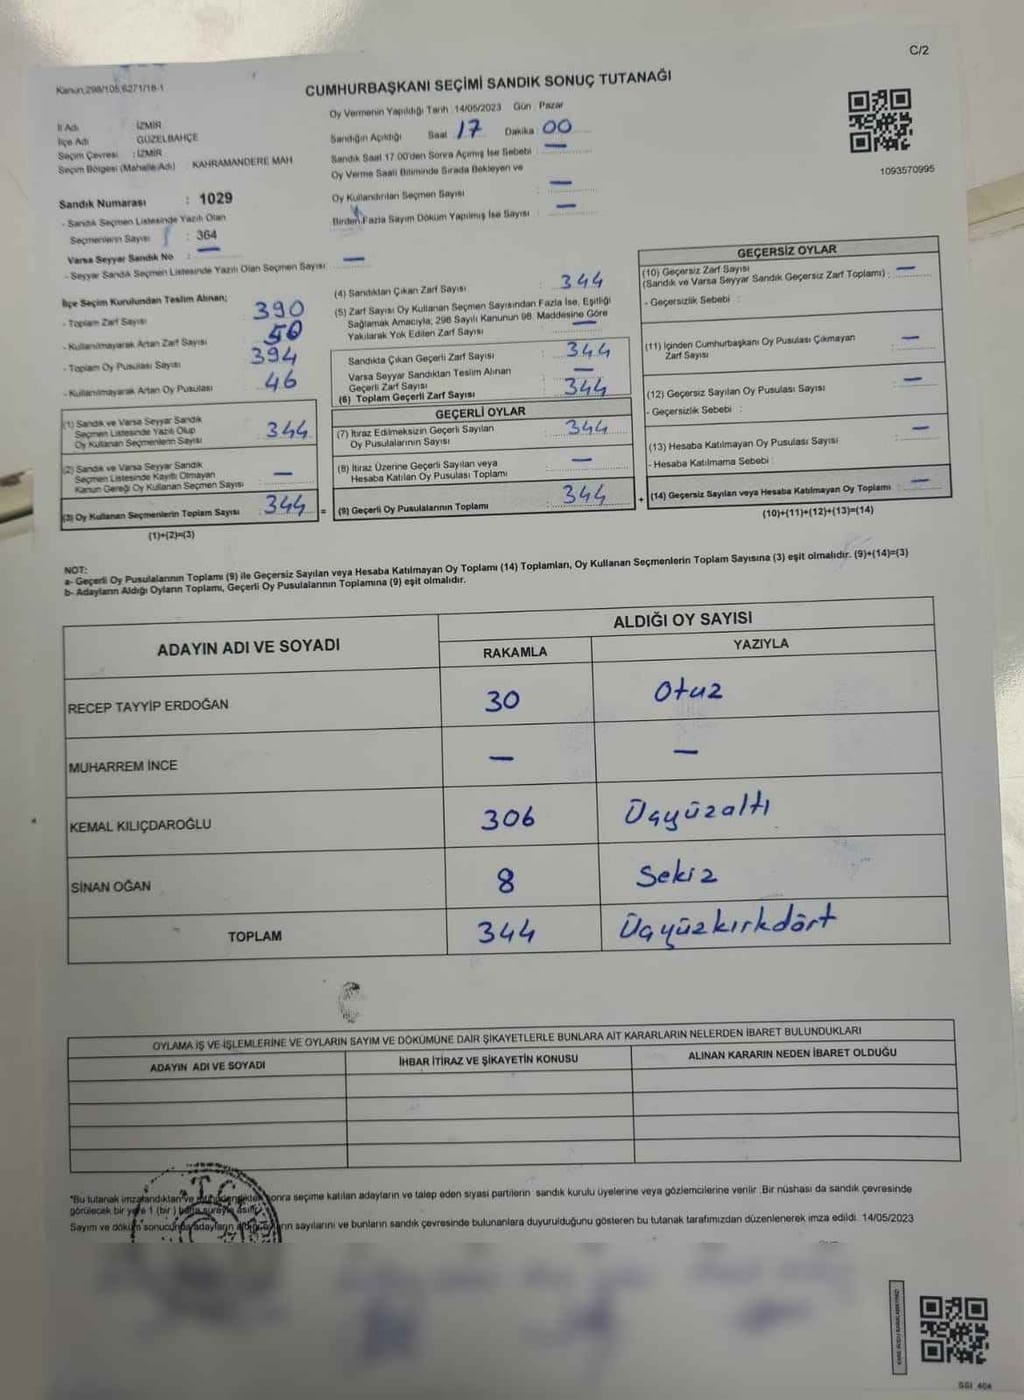 C/2
Kanun,298/105,6271/18-1
CUMHURBAŞKANI SEÇİMİ SANDIK SONUÇ TUTANAĞI
Oy Vermenin Yapıldığı Tarih : 14/05/2023 Gün : Pazar
İl Adı : İZMİR
İlçe Adı : GÜZELBAHÇE
Seçim Çevresi : İZMİR
Seçim Bölgesi (Mahalle Adı) : KAHRAMANDERE MAH
Sandık Numarası : 1029
- Sandık Seçmen Listesinde Yazılı Olan
Seçmenlerin Sayısı : 364
Varsa Seyyar Sandık No : —
- Seyyar Sandık Seçmen Listesinde Yazılı Olan Seçmen Sayısı : —
Sandığın Açıldığı Saat 17 Dakika 00
Sandık Saat 17.00'den Sonra Açılmış İse Sebebi : —
Oy Verme Saati Bitiminde Sırada Bekleyen ve
Oy Kullandırılan Seçmen Sayısı : —
Birden Fazla Sayım Döküm Yapılmış İse Sayısı : —
1093570995
İlçe Seçim Kurulundan Teslim Alınan;
- Toplam Zarf Sayısı 390
- Kullanılmayarak Artan Zarf Sayısı 50
- Toplam Oy Pusulası Sayısı 394
- Kullanılmayarak Artan Oy Pusulası 46
(1) Sandık ve Varsa Seyyar Sandık
Seçmen Listesinde Yazılı Olup
Oy Kullanan Seçmenlerin Sayısı : 344
(2) Sandık ve Varsa Seyyar Sandık
Seçmen Listesinde Kayıtlı Olmayan
Kanun Gereği Oy Kullanan Seçmen Sayısı : —
(3) Oy Kullanan Seçmenlerin Toplam Sayısı : 344 =
(1)+(2)=(3)
(4) Sandıktan Çıkan Zarf Sayısı : 344
(5) Zarf Sayısı Oy Kullanan Seçmen Sayısından Fazla İse, Eşitliği
Sağlamak Amacıyla; 298 Sayılı Kanunun 98. Maddesine Göre
Yakılarak Yok Edilen Zarf Sayısı : —
Sandıkta Çıkan Geçerli Zarf Sayısı : 344
Varsa Seyyar Sandıktan Teslim Alınan
Geçerli Zarf Sayısı : —
(6) Toplam Geçerli Zarf Sayısı : 344
GEÇERLİ OYLAR
(7) İtiraz Edilmeksizin Geçerli Sayılan
Oy Pusulalarının Sayısı : 344
(8) İtiraz Üzerine Geçerli Sayılan veya
Hesaba Katılan Oy Pusulası Toplamı : —
(9) Geçerli Oy Pusulalarının Toplamı : 344 +
GEÇERSİZ OYLAR
(10) Geçersiz Zarf Sayısı
(Sandık ve Varsa Seyyar Sandık Geçersiz Zarf Toplamı) : —
- Geçersizlik Sebebi :
(11) İçinden Cumhurbaşkanı Oy Pusulası Çıkmayan
Zarf Sayısı : —
(12) Geçersiz Sayılan Oy Pusulası Sayısı : —
- Geçersizlik Sebebi :
(13) Hesaba Katılmayan Oy Pusulası Sayısı : —
- Hesaba Katılmama Sebebi :
(14) Geçersiz Sayılan veya Hesaba Katılmayan Oy Toplamı : —
(10)+(11)+(12)+(13)=(14)
NOT:
a- Geçerli Oy Pusulalarının Toplamı (9) ile Geçersiz Sayılan veya Hesaba Katılmayan Oy Toplamı (14) Toplamları, Oy Kullanan Seçmenlerin Toplam Sayısına (3) eşit olmalıdır. (9)+(14)=(3)
b- Adayların Aldığı Oyların Toplamı, Geçerli Oy Pusulalarının Toplamına (9) eşit olmalıdır.
ADAYIN ADI VE SOYADI
ALDIĞI OY SAYISI
RAKAMLA YAZIYLA
RECEP TAYYİP ERDOĞAN 30 Otuz
MUHARREM İNCE — —
KEMAL KILIÇDAROĞLU 306 Üçyüzaltı
SİNAN OĞAN 8 Sekiz
TOPLAM 344 Üçyüzkırkdört
OYLAMA İŞ VE İŞLEMLERİNE VE OYLARIN SAYIM VE DÖKÜMÜNE DAİR ŞİKAYETLERLE BUNLARA AİT KARARLARIN NELERDEN İBARET BULUNDUKLARI
ADAYIN ADI VE SOYADI İHBAR İTİRAZ VE ŞİKAYETİN KONUSU ALINAN KARARIN NEDEN İBARET OLDUĞU
"Bu tutanak imzalandıktan ve mühürlendikten sonra seçime katılan adayların ve talep eden siyasi partilerin sandık kurulu üyelerine veya gözlemcilerine verilir. Bir nüshası da sandık çevresinde
görülecek bir yere 1 (bir) hafta süreyle asılır.
Sayım ve döküm sonucunda adayların aldığı oyların sayılarını ve bunların sandık çevresinde bulunanlara duyurulduğunu gösteren bu tutanak tarafımızdan düzenlenerek imza edildi. 14/05/2023